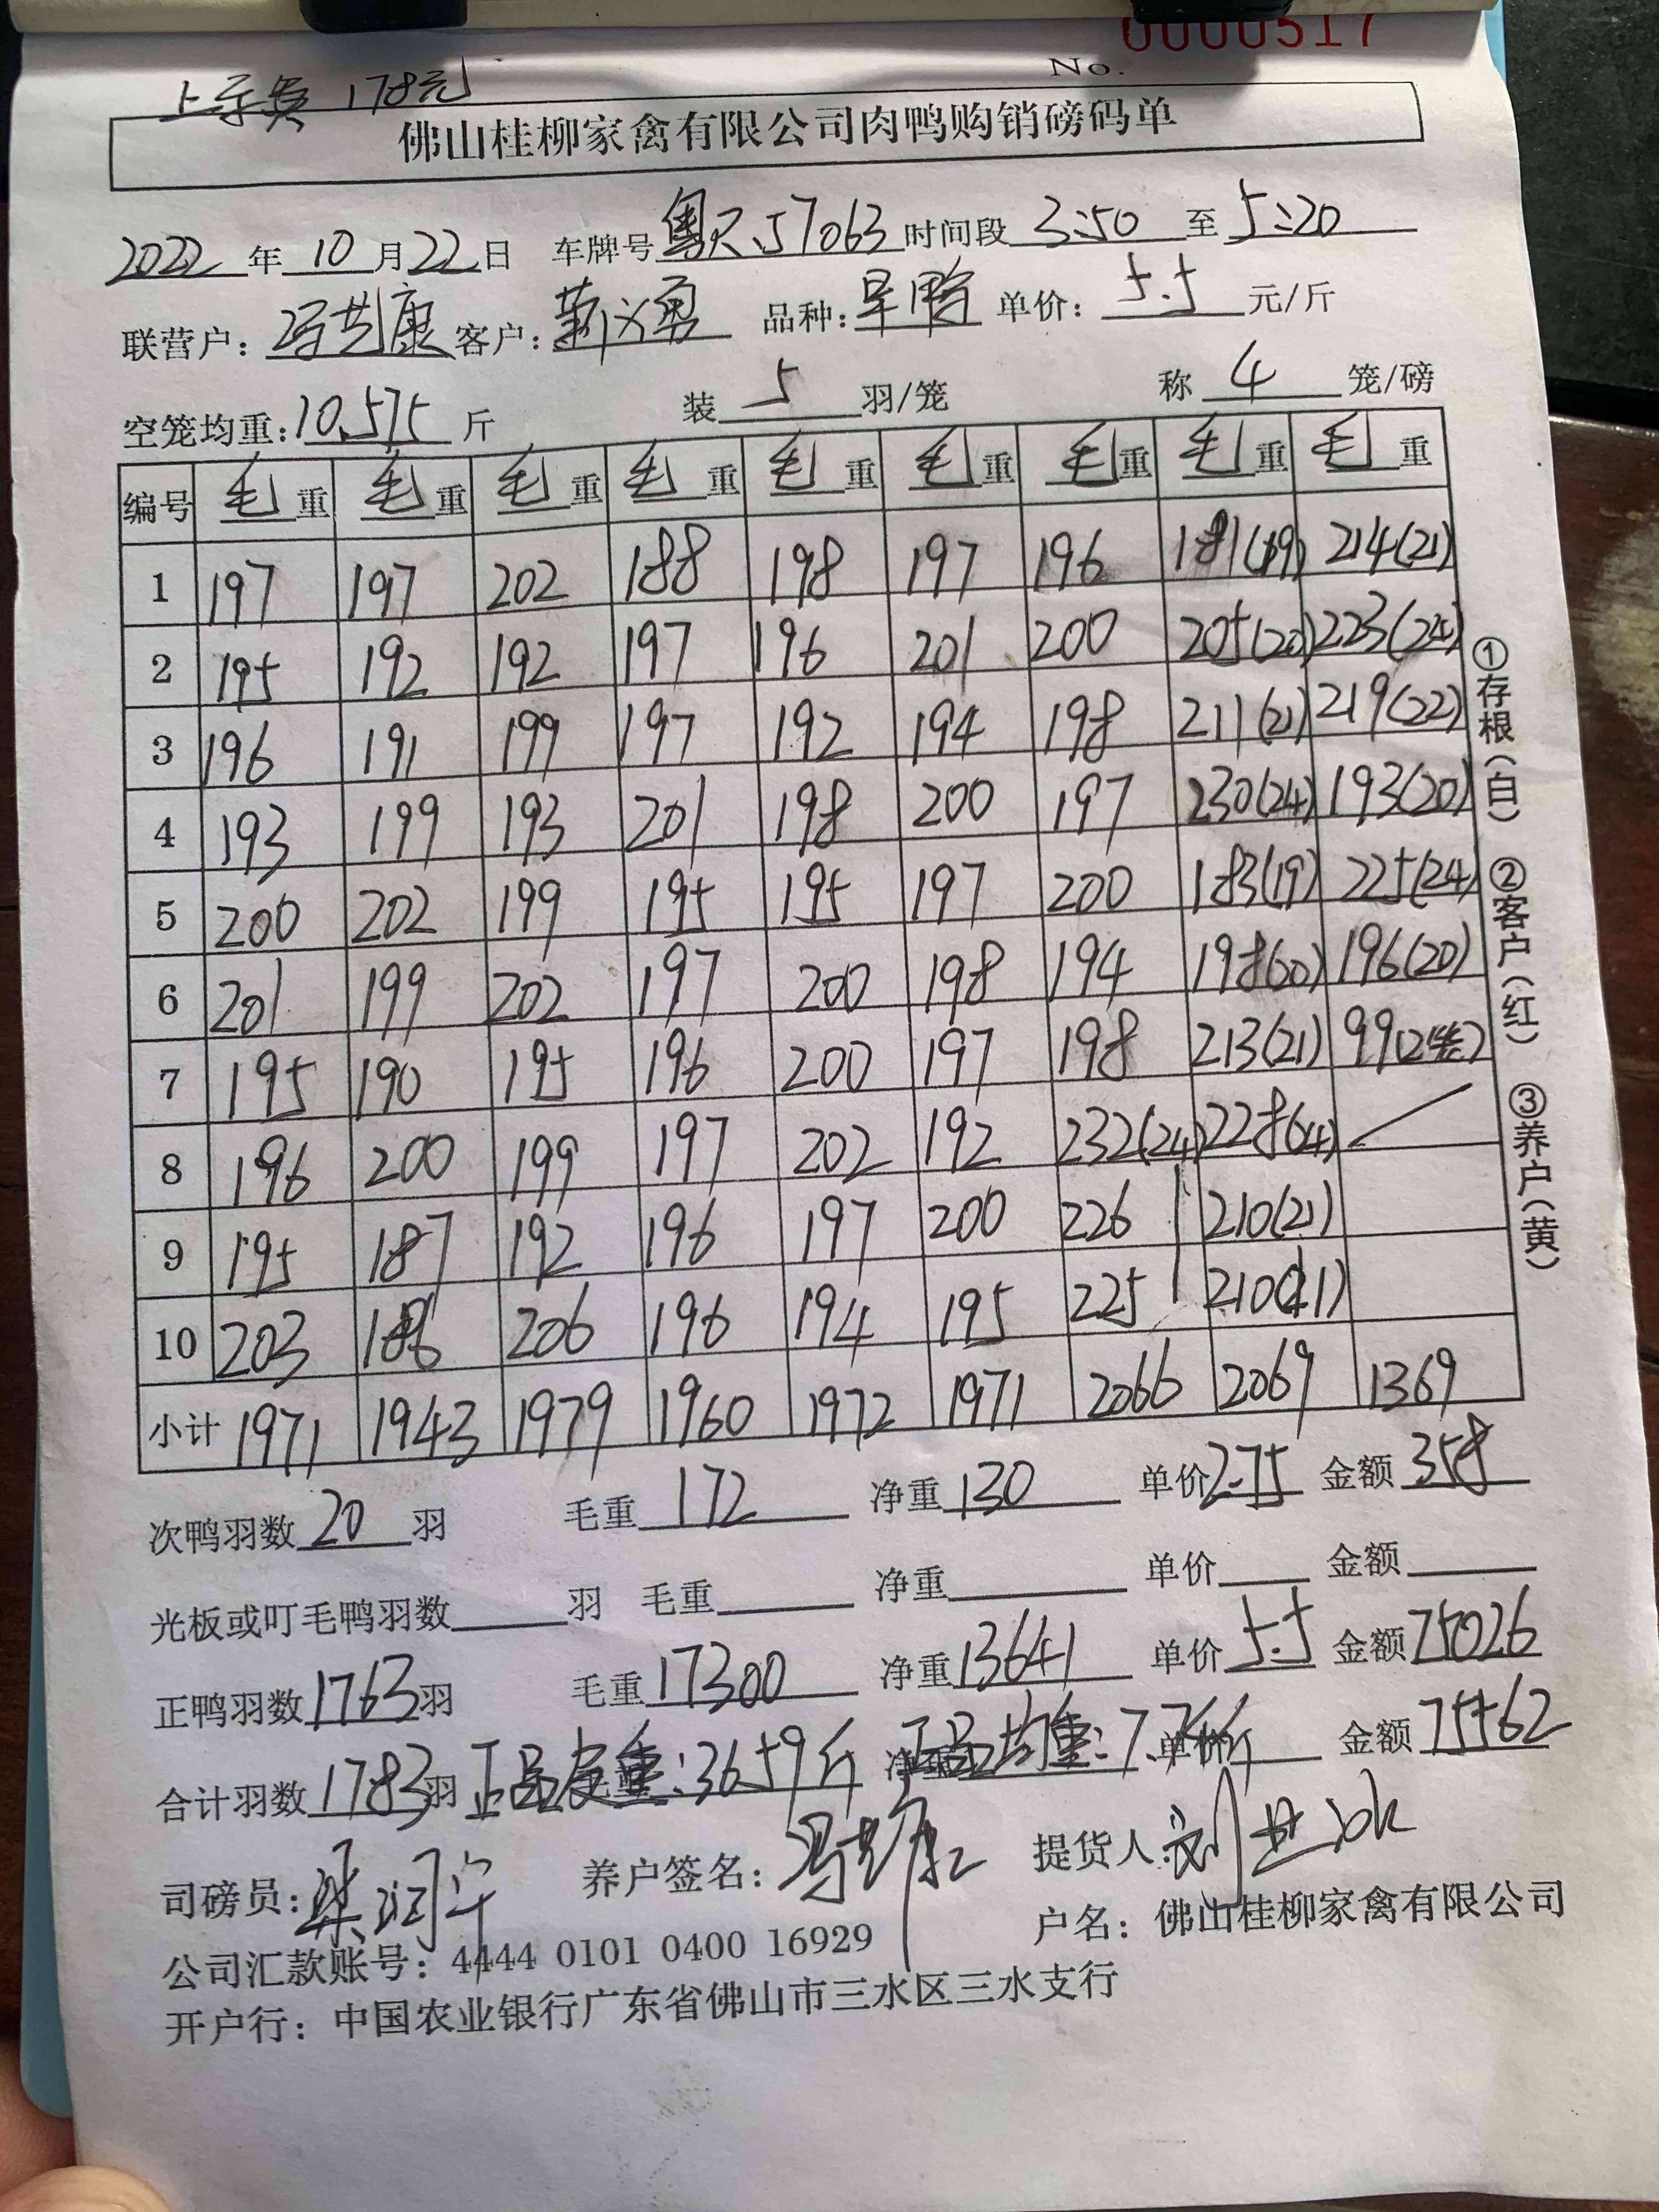 0000517
No.
上车费 178元
佛山桂柳家禽有限公司肉鸭购销磅码单
2022 年 10 月 22 日 车牌号 粤 57063 时间段 3:50 至 5:20
联营户： 冯艺康 客户： 义勇 品种： 鸭 单价： 5.5 元/斤
空笼均重： 10.575 斤 装 5 羽/笼 称 4 笼/磅
编号 毛重 毛重 毛重 毛重 毛重 毛重 毛重 毛重 毛重
1 197 197 202 188 198 197 196 181(19) 214(21)
2 195 192 192 197 196 201 200 205(20) 223(24)
3 196 191 199 197 192 194 198 211(21) 219(22)
4 193 199 193 201 198 200 197 230(24) 193(20)
5 200 202 199 195 195 197 200 183(19) 225(24)
6 201 199 202 197 200 198 194 198(20) 196(20)
7 195 190 195 196 200 197 198 213(21) 99(2笼)
8 196 200 199 197 202 192 232(24) 228(24)
9 195 187 192 196 197 200 226 210(21)
10 203 186 206 196 194 195 225 210(21)
小计 1971 1943 1979 1960 1972 1971 2066 2069 1369
次鸭羽数 20 羽 毛重 172 净重 130 单价 2.75 金额 358
光板或叮毛鸭羽数 羽 毛重 净重 单价 金额
正鸭羽数 1763 羽 毛重 17300 净重 13641 单价 5.5 金额 75026
合计羽数 1783 羽 正品皮重：3659斤 正品均重：7.7斤 单价 金额 75562
司磅员： 梁润 养户签名： 冯艺康 提货人： 刘
公司汇款账号：4444 0101 0400 16929 户名：佛山桂柳家禽有限公司
开户行：中国农业银行广东省佛山市三水区三水支行
①存根（白） ②客户（红） ③养户（黄）